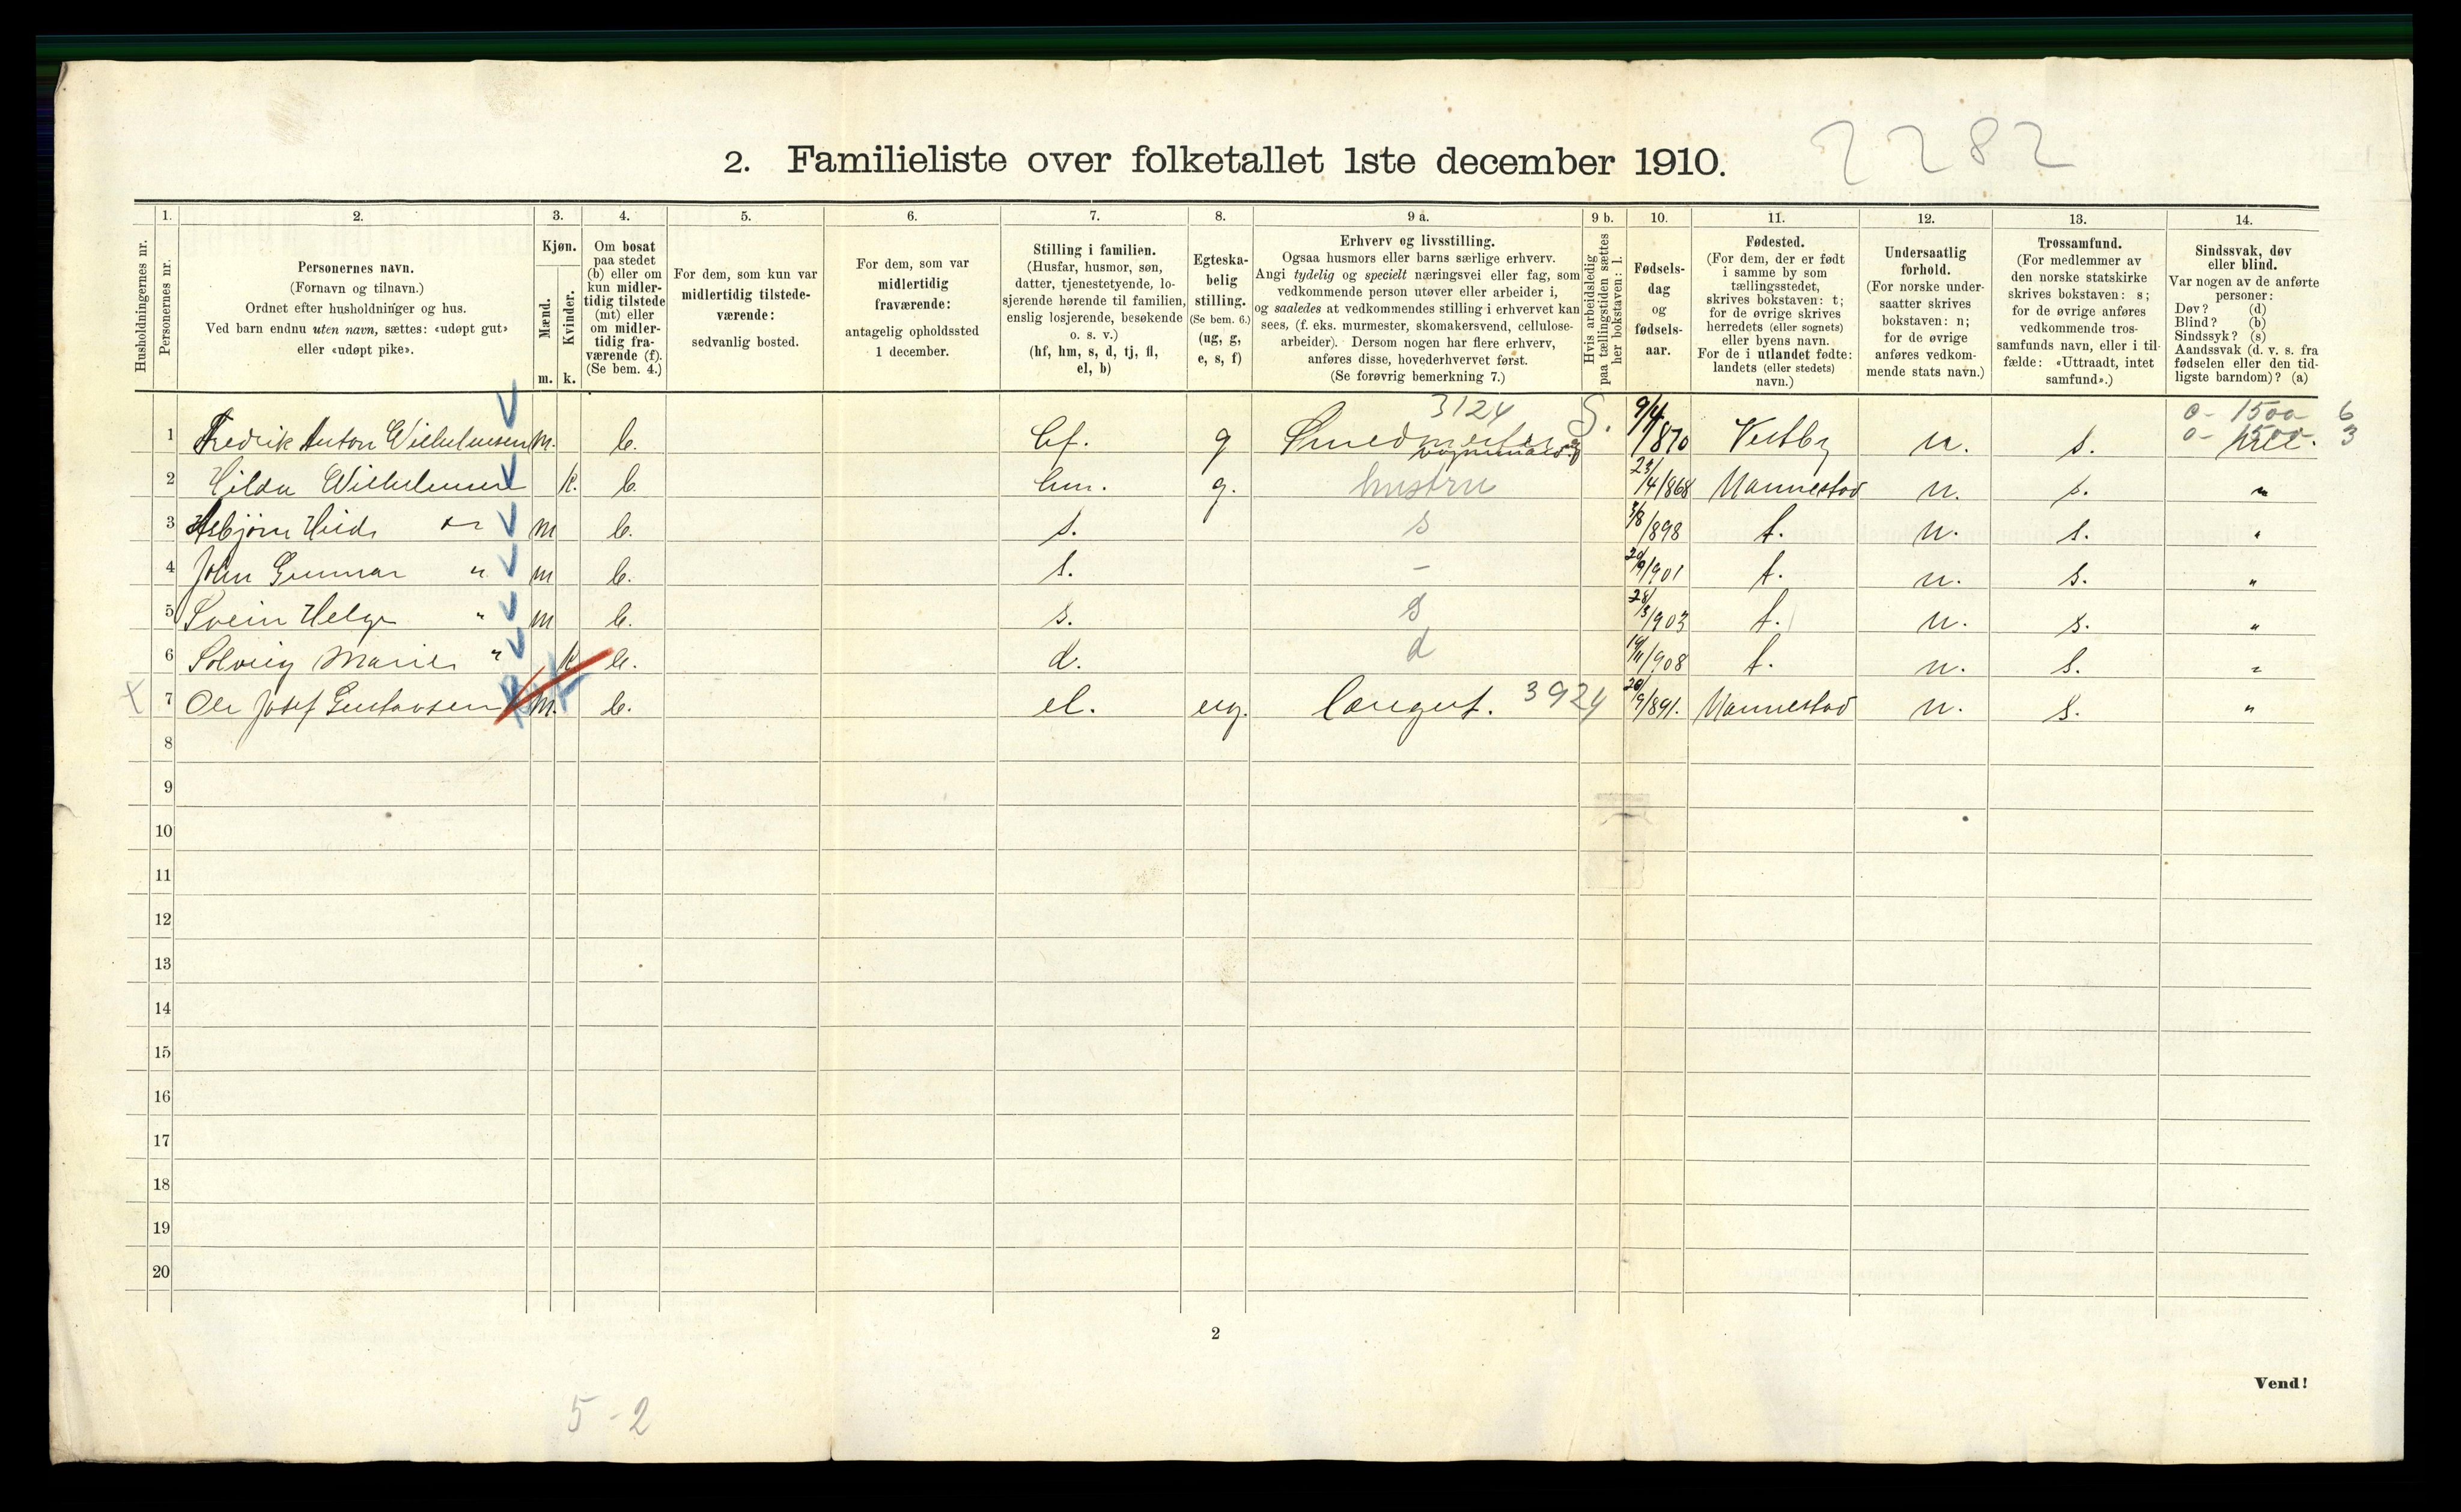 2. Familieliste over folketallet 1ste december 1910.
2282
1. 2. 3. 4. 5. 6. 7. 8. 9 a. 9 b. 10. 11. 12. 13. 14.
Husholdningernes nr.
Personernes nr.
Personernes navn.
(Fornavn og tilnavn.)
Ordnet efter husholdninger og hus.
Ved barn endnu uten navn, sættes: «udøpt gut»
eller «udøpt pike».
Kjøn.
Mænd.
Kvinder.
m. k.
Om bosat
paa stedet
(b) eller om
kun midler-
tidig tilstede
(mt) eller
om midler-
tidig fra-
værende (f).
(Se bem. 4.)
For dem, som kun var
midlertidig tilstede-
værende:
sedvanlig bosted.
For dem, som var
midlertidig
fraværende:
antagelig opholdssted
1 december.
Stilling i familien.
(Husfar, husmor, søn,
datter, tjenestetyende, lo-
sjerende hørende til familien,
enslig losjerende, besøkende
o. s. v.)
(hf, hm, s, d, tj, fl,
el, b)
Egteska-
belig
stilling.
(Se bem. 6.)
(ug, g,
e, s, f)
Erhverv og livsstilling.
Ogsaa husmors eller barns særlige erhverv.
Angi tydelig og specielt næringsvei eller fag, som
vedkommende person utøver eller arbeider i,
og saaledes at vedkommendes stilling i erhvervet kan
sees, (f. eks. murmester, skomakersvend, cellulose-
arbeider). Dersom nogen har flere erhverv,
anføres disse, hovederhvervet først.
(Se forøvrig bemerkning 7.)
Hvis arbeidsledig
paa tællingstiden sættes
her bokstaven: l.
Fødsels-
dag
og
fødsels-
aar.
Fødested.
(For dem, der er født
i samme by som
tællingsstedet,
skrives bokstaven: t;
for de øvrige skrives
herredets (eller sognets)
eller byens navn.
For de i utlandet fødte:
landets (eller stedets)
navn.)
Undersaatlig
forhold.
(For norske under-
saatter skrives
bokstaven: n;
for de øvrige
anføres vedkom-
mende stats navn.)
Trossamfund.
(For medlemmer av
den norske statskirke
skrives bokstaven: s;
for de øvrige anføres
vedkommende tros-
samfunds navn, eller i til-
fælde: «Uttraadt, intet
samfund».)
Sindssvak, døv
eller blind.
Var nogen av de anførte
personer:
Døv? (d)
Blind? (b)
Sindssyk? (s)
Aandssvak (d. v. s. fra
fødselen eller den tid-
ligste barndom)? (a)
3124 S. 0- 1500- 6
0- 1500- 3
1 Fredrik Anton Wilhelmsen m. b. hf. g Smedmester 9/4 1870 Vestby n. s.
2 Hilda Wilhelmsen k. b. hm. g. hustru 23/4 1868 Vannestad n. s. "
3 Asbjørn m b. s. s 3/8 1898 t. n. s. "
4 John Gunnar " m b. s. - 20/9 1901 t. n. s. "
5 Svein Helge " m b. s. s 28/3 1903 t. n. s. "
6 Solveig Marie " k b. d. d 19/11 1908 t. n. s. "
X 7 Ole Josef Gustavsen m. b. el. ug. læregut. 3924 20/9 1891. Vannestad n. s. "
8
9
10
11
12
13
14
15
16
17
18
19
20
2
Vend!
5-2